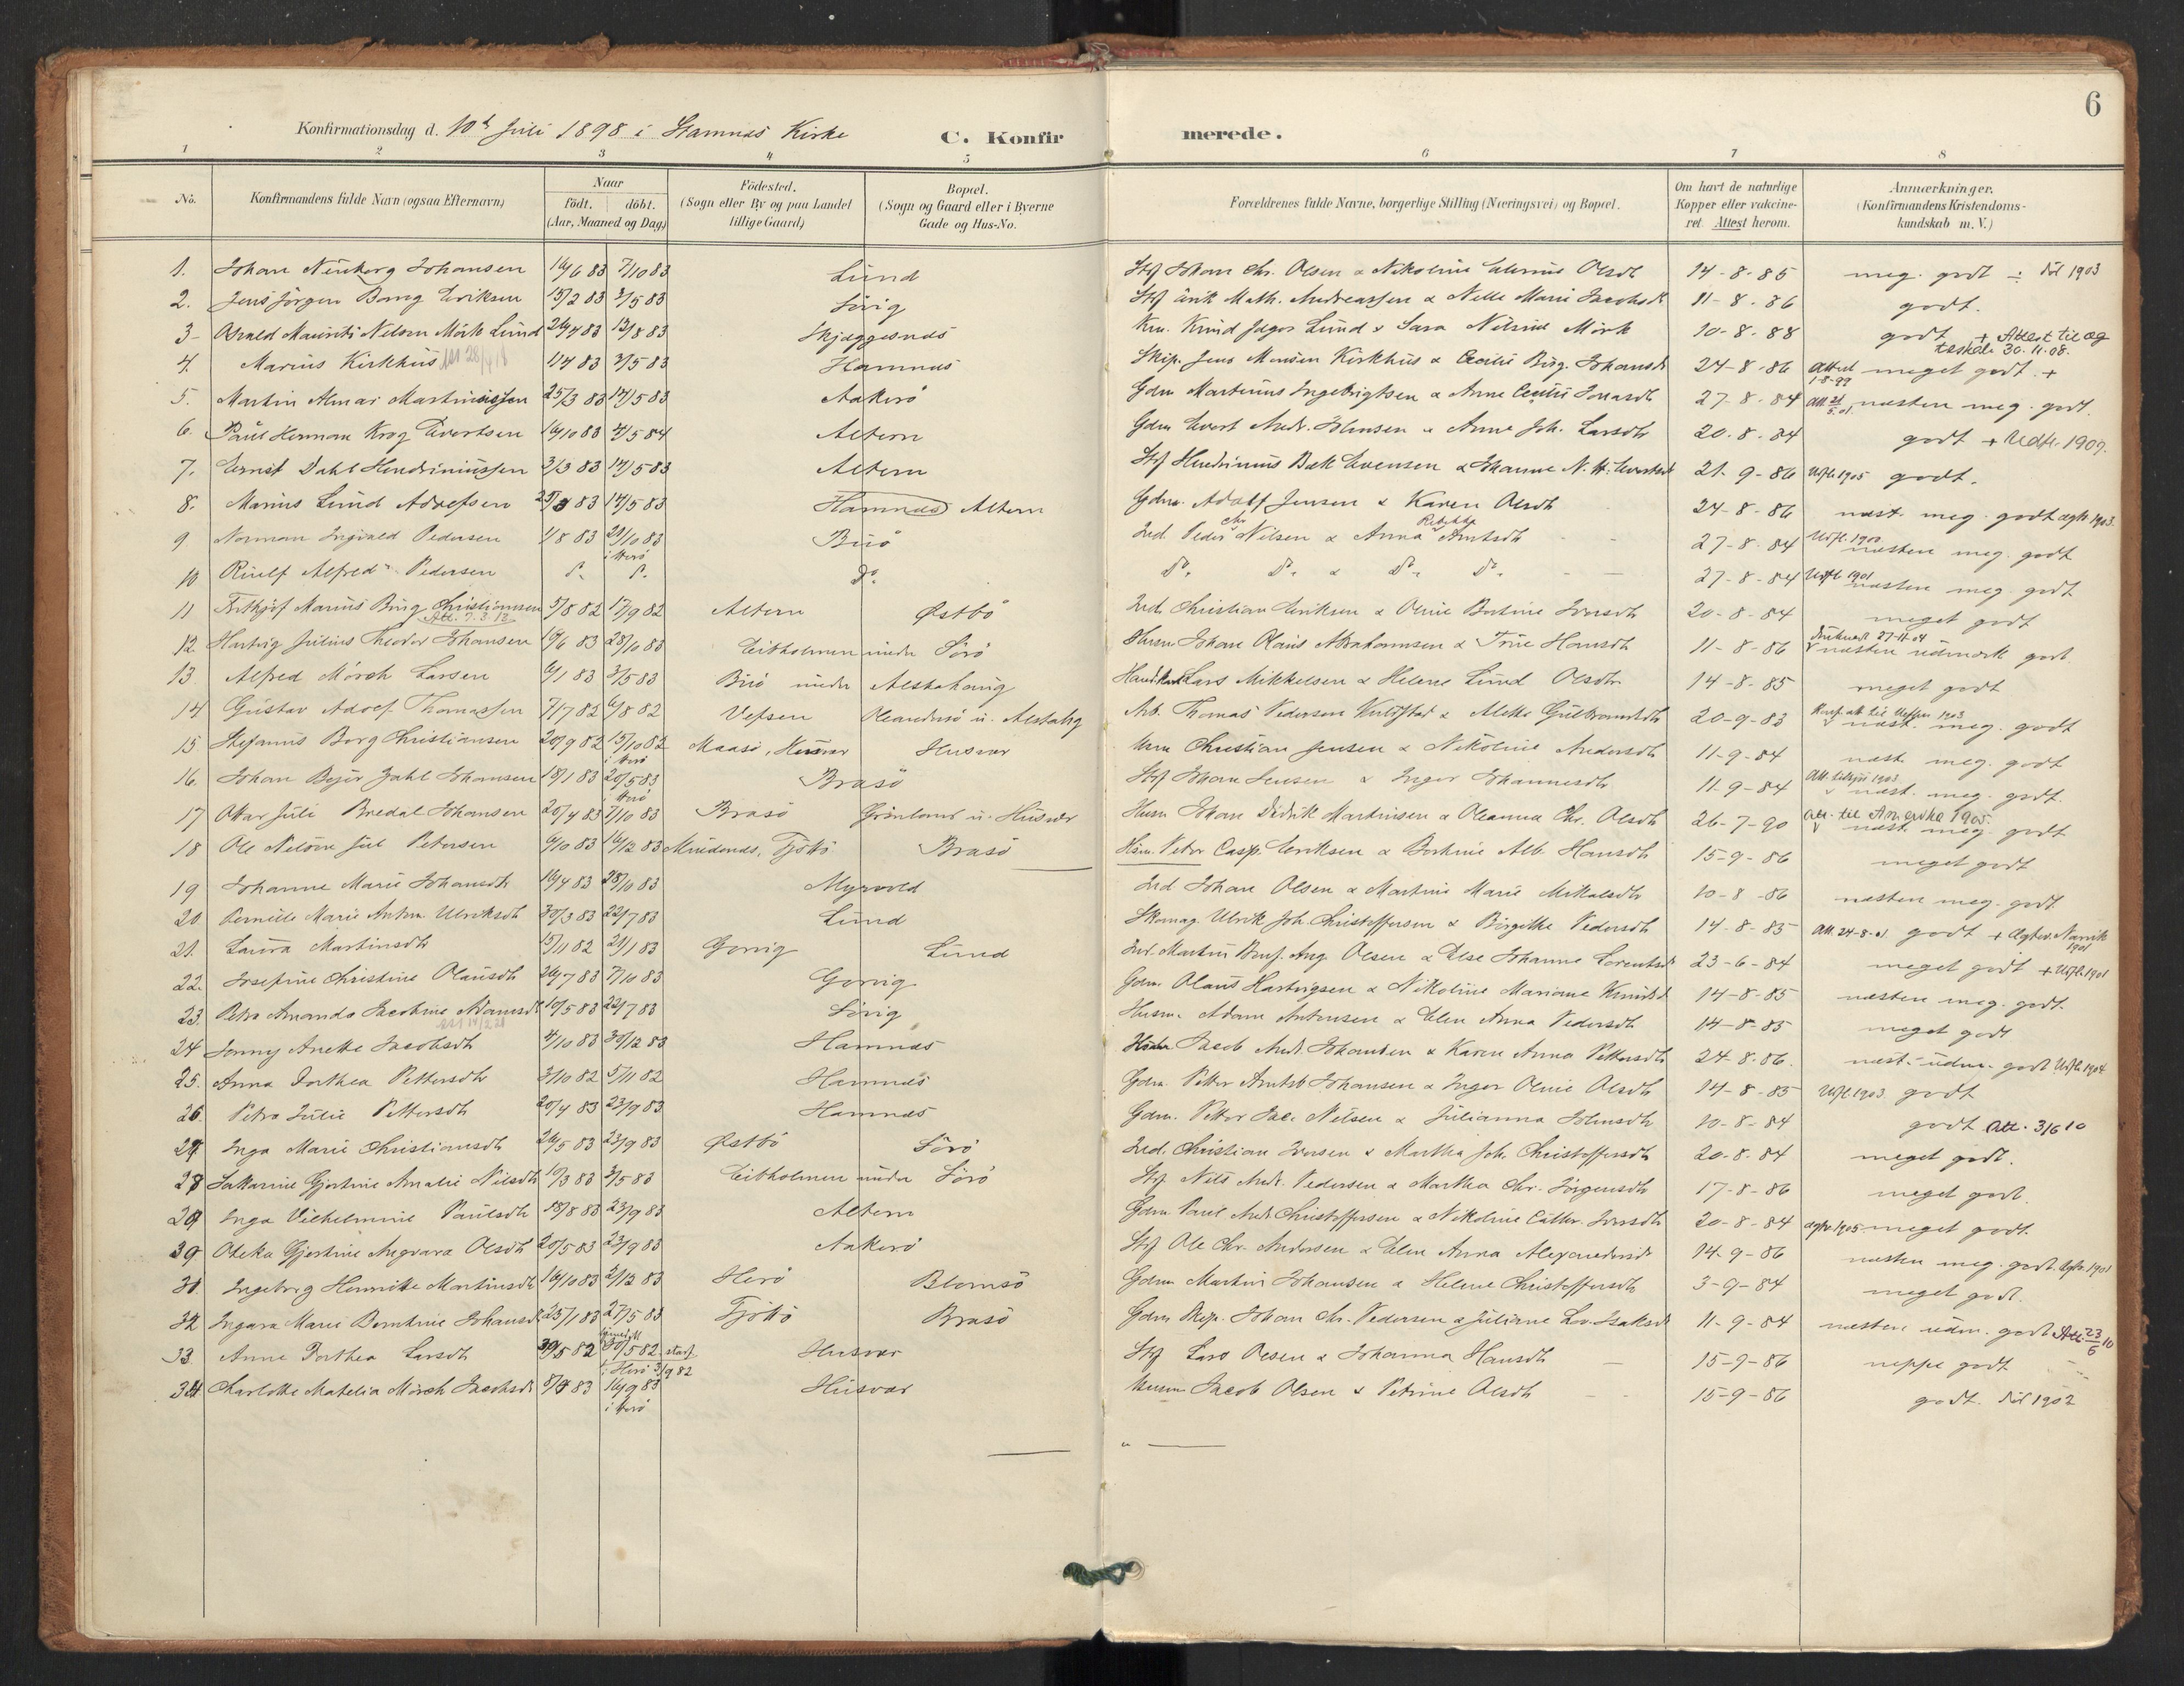 6
Konfirmationsdag d. 10de Juli 1898 i Stamnæs Kirke
C. Konfirmerede.
1 2 3 4 5 6 7 8
No. Konfirmandens fulde Navn (ogsaa Efternavn) Naar Födt. döbt. (Aar, Maaned og Dag) Födested. (Sogn eller By og paa Landet tillige Gaard) Bopæl. (Sogn og Gaard eller i Byerne Gade og Hus-No. Forældrenes fulde Navne, borgerlige Stilling (Næringsvei) og Bopæl. Om havt de naturlige Kopper eller vakcineret. Attest herom. Anmærkninger. (Konfirmandens Kristendomskundskab m. V.)
1. Johan Johansen 16/6 83 7/10 83 Lund Strf Johan Chr. Olsen & Nikoline Olsdtr 14-8-85 meg. godt 1903
2. Jens Jörgen Bang Eriksen 15/2 83 3/5 83 Sövig Strf Erik Math. Andreassen & Nelle Marie Jacobsd 11-8-86 godt.
3 Osvald Mauritz Nelson Mörk Lund 26/4 83 12/8 83 Skjæggesnæs Knud Lund & Sara Mörk 10-8-88 godt + Attest til ægteskab 30-11-08.
4. Marius Kirkhus 1/4 83 3/5 83 Hamnæs Skip. Jens Monsen Kirkhus & Cecilie Birg. Johansd 24-8-86 Attest 1-8-99 meget godt +
5. Martin Almar Martinussen 25/3 83 14/5 83 Aakerö Gdm Martinus Ingebrigtsen & Anne Cecilie Jonasdt 27-8-84 næsten meg. godt.
6. Paul Herman Krog Evertsen 16/10 83 4/5 84 Altern Gdm Evert Andr. & Anne Joh. Larsdtr 20-8-84 godt + Udfl. 1907.
7. Ernst Dahl Hendriniussen 3/3 83 14/5 83 Altern Strf Hendrinius Bek Evensen & Johanne N. 21-9-86 Udfl. 1905 godt.
8. Marius Lund Adolfsen 83 14/5 83 Hamnæs Altern Gdm. Adolf Jensen & Karen Olsdtr 24-8-86 næst. meg. godt ægtv. 1903.
9 Norman Ingvald Pedersen 1/8 83 21/10 83 i Herö Buö Ind. Peder Chr. Nilsen & Anna Rebekka Arntsdtr 27-8-84 Udfl. 1900 næsten meg. godt
10 Rudolf Alfred Pedersen do. do. do. do. do. & do. do. 27-8-84 Udfl. 1901 næsten meg. godt
11 Frithjof Marius Birg Christiansen Att. 7-3-13 5/8 82 17/9 82 Altern Østbö Ind. Christian Eriksen & Oline Iversdtr 20-8-84 meget godt
12. Hartvig Julius Theodor Johansen 19/6 83 28/10 83 Eitholmen under Sörö Husm Johan Olaus Abrahamsen & Trine Hansdtr 11-8-86 næsten udmærk. godt.
13. Alfred Mörch Larsen 6/1 83 3/5 83 Buö under Alstahaug Lars Mikkelsen & Helene Lund Olsdtr 14-8-85 meget godt
14 Gustav Adolf Thomassen 7/7 82 6/8 82 Vefsen u. Alstahg Arb. Thomas Pedersen & Alette Gulbrandsdtr 20-9-83 1903 næst. meg. godt
15 Stefanus Borg Christiansen 20/9 82 15/10 82 i Herö Maasö, Husvær Husvær Christian Jensen & Nikoline Andersdtr 11-9-84 næst. meg. godt
16. Johan Bejer Dahl Johansen 18/1 83 20/5 83 i Herö Brasö Strf Johan Jensen & Inger Johannesdtr 11-9-84 1903 næst. meg. godt.
17 Ottar Juli Bredal Johansen 20/4 83 7/10 83 Brasö Grönland u. Husvær Husm Johan Didrik Martinsen & Oleanna Chr. Olsdt 26-7-90 Att. til Amerika 1905 næst. meg. godt
18 Ole Nelson Jul Petersen 6/10 83 16/12 83 Mindenæs, Tjöttö Brasö Husm. Peter Casp. Eriksen & Alb. Hansdtr 15-9-86 meget godt
19 Johanne Marie Johansdtr 16/4 83 28/10 83 Myrvold Ind Johan Olsen & Martine Marie Mikalsdtr 10-8-86 næsten meg. godt
20. Pernille Marie Anton Ulriksdt 30/3 83 22/7 83 Lund Skomag. Ulrik Joh. Christoffersen & Birgitte Pedersdtr 14-8-85 Att. 24-8-01 godt + Ægtev. Narvik 1901
21. Laura Martinsdtr 15/11 82 21/1 83 Gorvig Lund Ind. Martin Ang Olsen & Else Johanne Lorentsd 23-6-84 meget godt + Udfl. 1901
22. Josefine Christine Olausdt 26/7 83 7/10 83 Gorvig Gdm. Olaus Hartvigsen & Nikoline Mariane Knutsd 14-8-85 næsten meg. godt.
23. Petra Amanda Jacobine Adamsdt 10/5 83 22/7 83 Sövig Husm. Adam Antonsen & Elen Anna Pedersdtr 14-8-85 meget godt
24 Jonny Anette Jacobsdt 4/10 83 30/12 83 Hamnæs Jacob Andr. Johansen & Karen Anna Pettersdtr 24-8-86. næst. udm. godt Udfl. 1904
25. Anna Dorthea Pettersdtr 3/10 82 5/11 82 Hamnæs Gdm. Petter Johansen & Inger Oline Olsdtr 14-8-85 Udfl. 1903. godt
26. Petra Julie Pettersdtr 20/4 83 23/9 83 Hamnæs Gdm. Petter Jac. Nilsen & Julianna Johnsdtr 10-8-84 godt Att. 3/6 10
27 Inga Marie Christiansdt 26/5 83 23/9 83 Østbö Sörö Ind. Christian Iversen & Martha Joh. Christoffersdtr 20-8-84 meget godt.
28 Sakarine Gjertine Amalie Nilsdt 10/3 83 3/5 83 Eitholmen under Sörö Strf Nils Andr. Pedersen & Martha Chr. Jörgensdtr 17-8-86 meget godt.
29 Inga Vilhelmine Paulsdtr 18/8 83 23/9 83 Altern Gdm Paul Andr. Christoffersen & Nikoline Iversdtr 20-8-84 ægtv. 1905 meget godt.
30 Oleka Gjertine Angvara Olsdt 20/5 83 23/9 83 Aakerö Strf Ole Chr. Andersen & Elen Anna 14-9-86 næsten meg. godt. 1901
31. Ingeborg Henrikke Martinsdt 16/10 83 2/12 83 Herö Blomsö Gdm Martin Johansen & Helene Christoffersdtr 3-9-84 meget godt.
32 Ingara Marie Berntine Johansd 25/1 83 27/5 83 Tjöttö Brasö Gdm Johan Chr. Pedersen & Juliane Lov. Isaksd 11-9-84 næsten udm. godt Att 23/6 10
33. Anne Dorthea Larsdt 30/5 82 30/5 82 stadf. i Herö 3/9 82 Husvær Strf Lars Olsen & Johanna Hansdtr 15-9-86 neppe godt
34 Charlotte Matelia Mörch Jacobsd 83 16/9 83 i Herö Husvær Husm Jacob Olsen & Petrine Olsdtr 15-9-86 godt. 1902